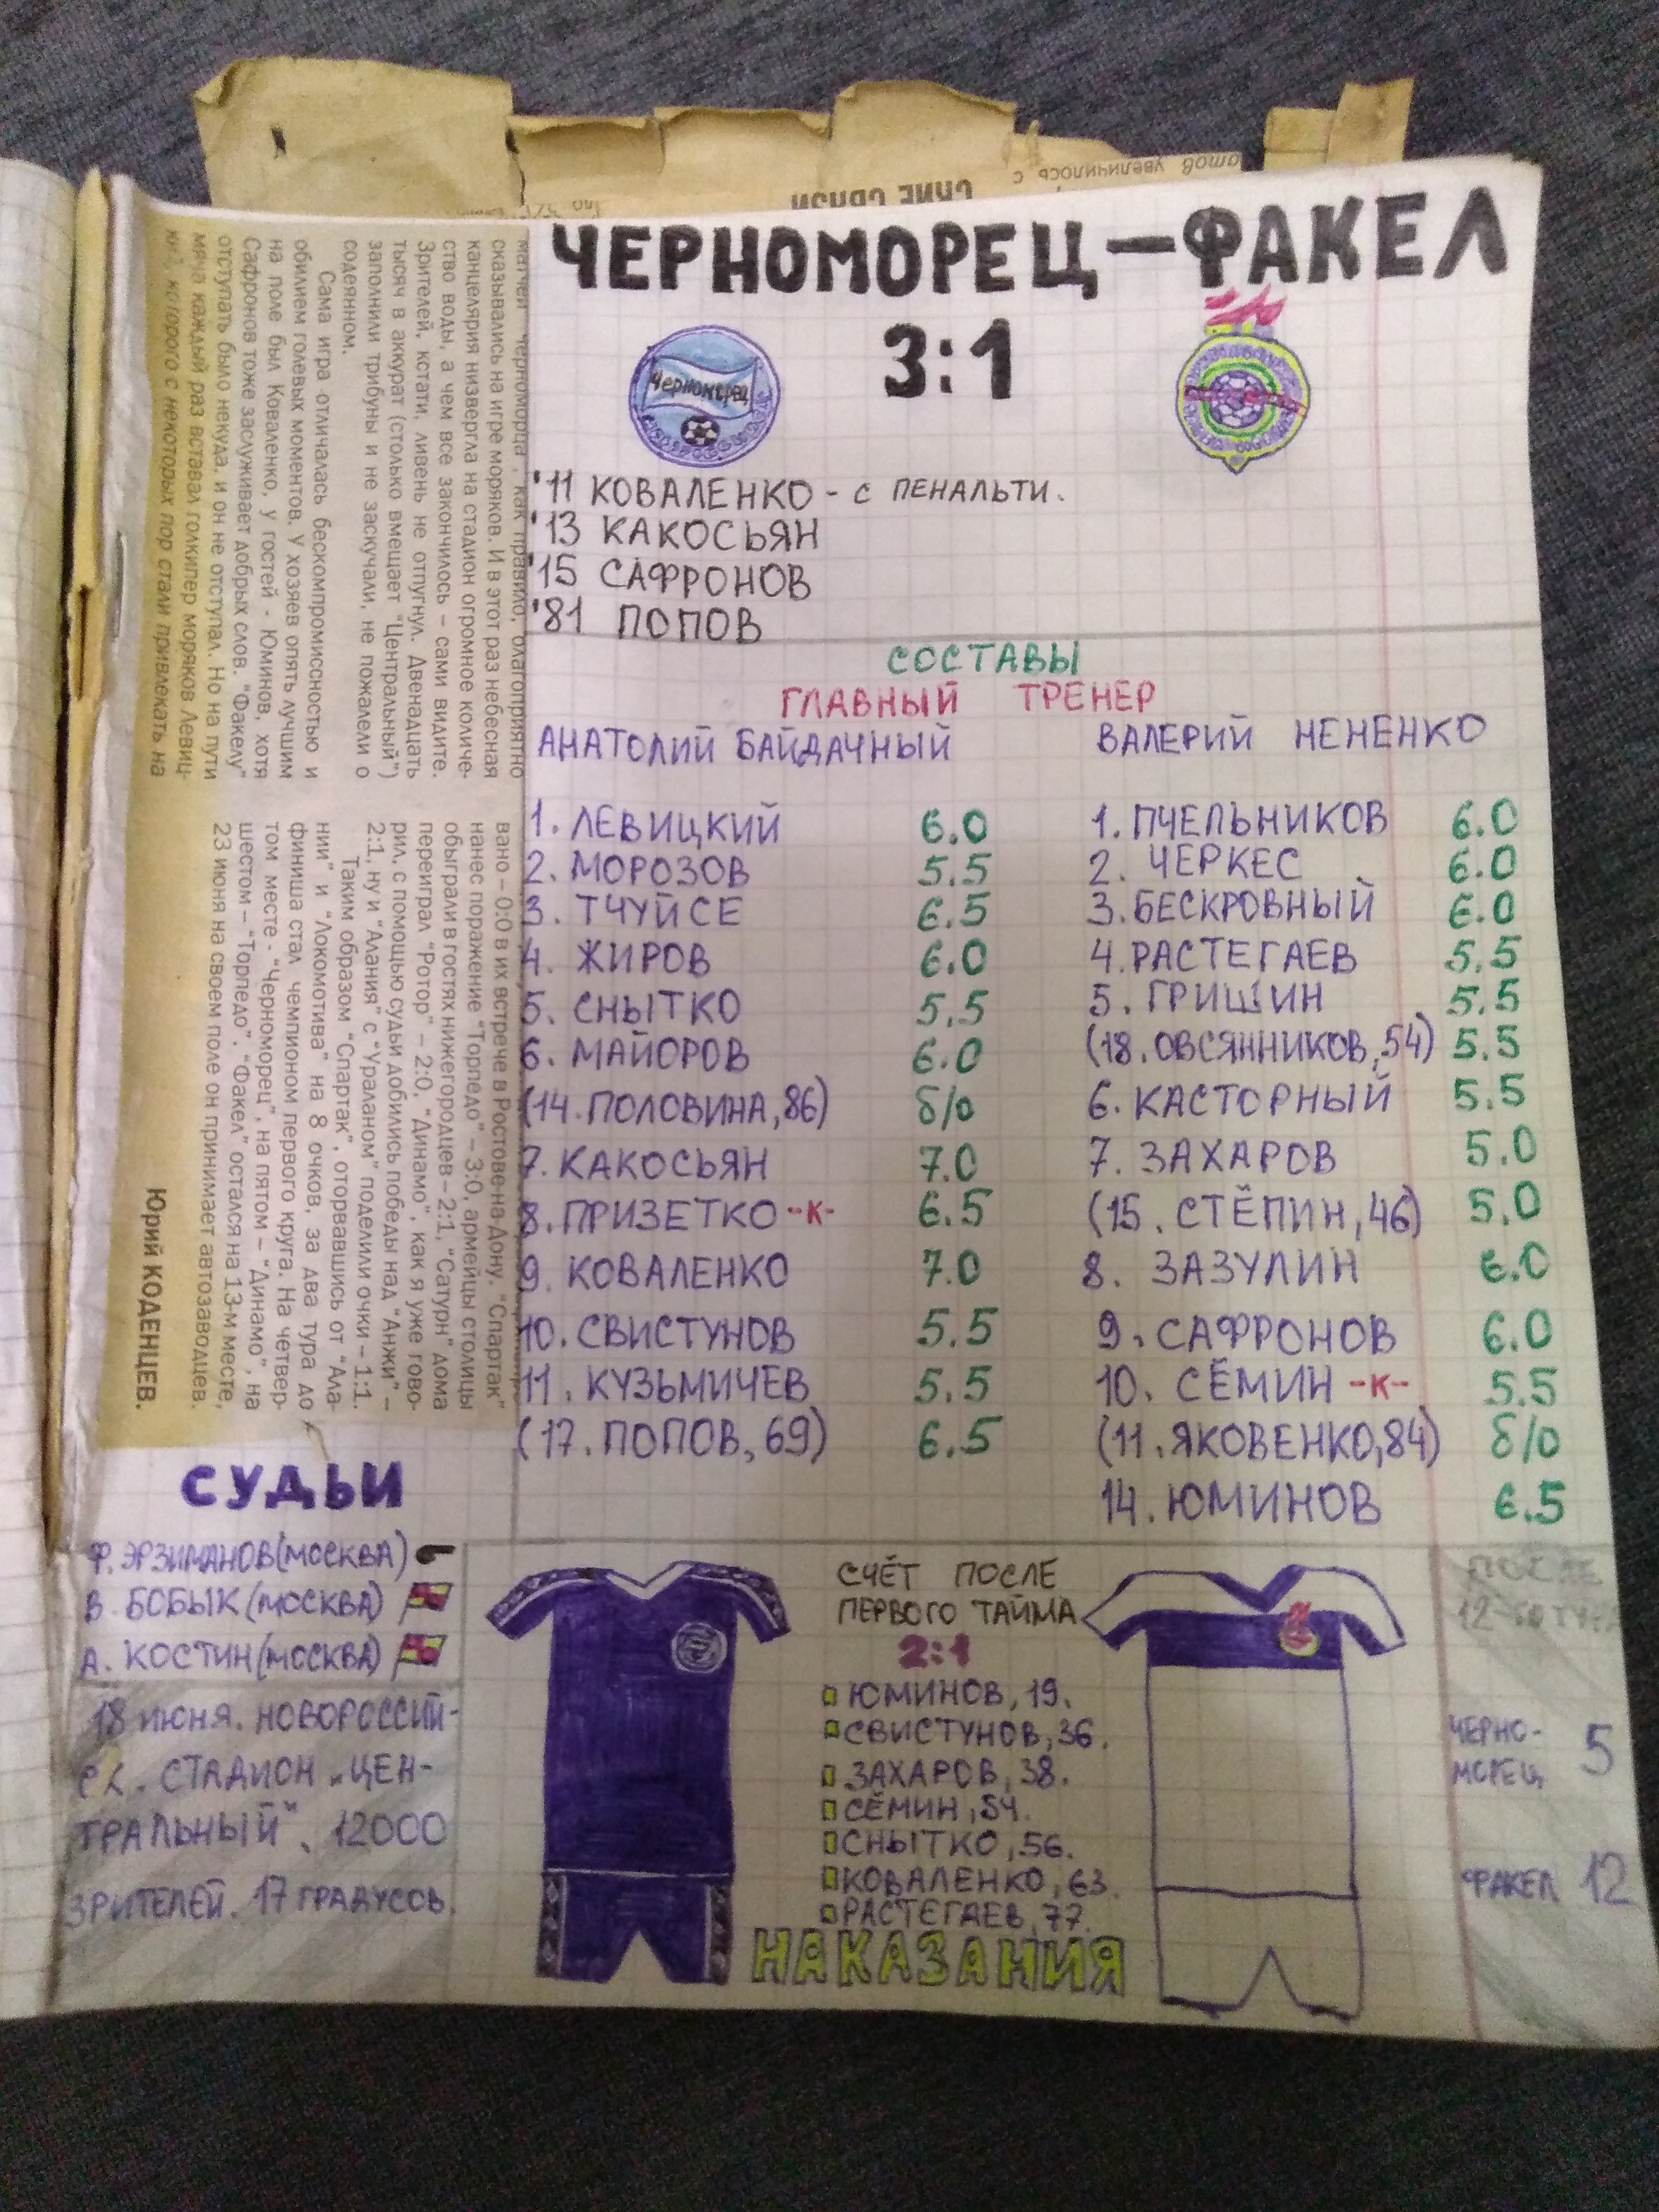 ЧЕРНОМОРЕЦ – ФАКЕЛ
3:1
Черноморец
'11 КОВАЛЕНКО - С ПЕНАЛЬТИ.
'13 КАКОСЬЯН
'15 САФРОНОВ
'81 ПОПОВ
СОСТАВЫ
ГЛАВНЫЙ ТРЕНЕР
АНАТОЛИЙ БАЙДАЧНЫЙ
1. ЛЕВИЦКИЙ 6.0
2. МОРОЗОВ 5.5
3. ТЧУЙСЕ 6.5
4. ЖИРОВ 6.0
5. СНЫТКО 5.5
6. МАЙОРОВ 6.0
(14. ПОЛОВИНА, 86) б/о
7. КАКОСЬЯН 7.0
8. ПРИЗЕТКО -К- 6.5
9. КОВАЛЕНКО 7.0
10. СВИСТУНОВ 5.5
11. КУЗЬМИЧЕВ 5.5
(17. ПОПОВ, 69) 6.5
ВАЛЕРИЙ НЕНЕНКО
1. ПЧЕЛЬНИКОВ 6.0
2. ЧЕРКЕС 6.0
3. БЕСКРОВНЫЙ 6.0
4. РАСТЕГАЕВ 5.5
5. ГРИШИН 5.5
(18. ОВСЯННИКОВ, 54) 5.5
6. КАСТОРНЫЙ 5.5
7. ЗАХАРОВ 5.0
(15. СТЁПИН, 46) 5.0
8. ЗАЗУЛИН 6.0
9. САФРОНОВ 6.0
10. СЁМИН -К- 5.5
(11. ЯКОВЕНКО, 84) б/о
14. ЮМИНОВ 6.5
матчей черноморца, как правило, благоприятно
сказывались на игре моряков. И в этот раз небесная
канцелярия низвергла на стадион огромное количе-
ство воды, а чем все закончилось – сами видите.
Зрителей, кстати, ливень не отпугнул. Двенадцать
тысяч в аккурат (столько вмещает "Центральный")
заполнили трибуны и не заскучали, не пожалели о
содеянном.
Сама игра отличалась бескомпромиссностью и
обилием голевых моментов. У хозяев опять лучшим
на поле был Коваленко, у гостей - Юминов, хотя
Сафронов тоже заслуживает добрых слов. "Факелу"
отступать было некуда, и он не отступал. Но на пути
мяча каждый раз вставал голкипер моряков Левиц-
кий, которого с некоторых пор стали привлекать на
вано – 0:0 в их встрече в Ростове-на-Дону. "Спартак"
нанес поражение "Торпедо" – 3:0, армейцы столицы
обыграли в гостях нижегородцев – 2:1, "Сатурн" дома
переиграл "Ротор" – 2:0, "Динамо", как я уже гово-
рил, с помощью судьи добились победы над "Анжи" –
2:1, ну и "Алания" с "Ураланом" поделили очки – 1:1.
Таким образом "Спартак", оторвавшись от "Ала-
нии" и "Локомотива" на 8 очков, за два тура до
финиша стал чемпионом первого круга. На четвер-
том месте - "Черноморец", на пятом – "Динамо", на
шестом – "Торпедо". "Факел" остался на 13-м месте,
23 июня на своем поле он принимает автозаводцев.
Юрий КОДЕНЦЕВ.
СУДЬИ
Ф. ЭРЗИМАНОВ (МОСКВА)
В. БОБЫК (МОСКВА)
А. КОСТИН (МОСКВА)
18 ИЮНЯ. НОВОРОССИЙ-
СК. СТАДИОН „ЦЕН-
ТРАЛЬНЫЙ". 12000
ЗРИТЕЛЕЙ. 17 ГРАДУСОВ.
СЧЁТ ПОСЛЕ
ПЕРВОГО ТАЙМА
2:1
ЮМИНОВ, 19.
СВИСТУНОВ, 36.
ЗАХАРОВ, 38.
СЁМИН, 54.
СНЫТКО, 56.
КОВАЛЕНКО, 63.
РАСТЕГАЕВ, 77.
НАКАЗАНИЯ
ПОСЛЕ
12-ГО ТУРА
ЧЕРНО-
МОРЕЦ 5
ФАКЕЛ 12